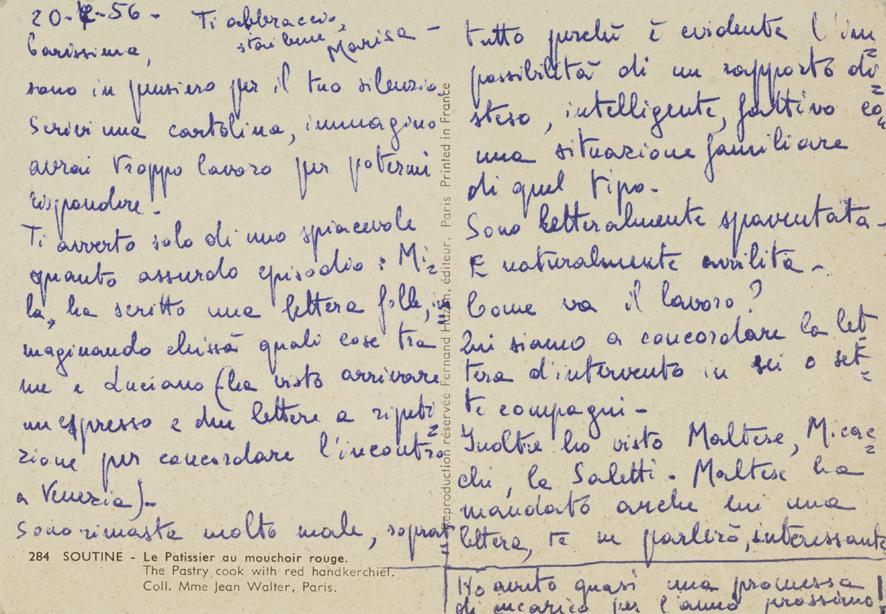 20-7-56-
Ti abbraccio,
stai bene, Marisa -
Carissima,
sono in pensiero per il tuo silenzio
Scrivi una cartolina, immagino
avrai troppo lavoro per potermi
rispondere.
Ti avverto solo di uno spiacevole
quanto assurdo episodio: Mi=
la, ha scritto una lettera folle, im
maginando chissà quali cose tra
me e Luciano (ha visto arrivare
un espresso e due lettere a ripeti
zione per concordare l'incontro
a Venezia)-
Sono rimasta molto male, soprat
284 SOUTINE - Le Patissier au mouchoir rouge.
The Pastry cook with red handkerchief.
Coll. Mme Jean Walter, Paris.
Reproduction réservée Fernand Hazan, éditeur, Paris Printed in France
tutto perchè è evidente l'im
possibilità di un rapporto di=
steso, intelligente, fattivo con
una situazione familiare
di quel tipo-
Sono letteralmente spaventata-
E naturalmente avvilita-
Come va il lavoro?
Qui siamo a concordare la let=
tera d'intervento in sei o set=
te compagni-
Inoltre ho visto Maltese, Micac=
chi, la Saletti. Maltese ha
mandato anche lui una
lettera, te ne parlerò, interessante
Ho avuto quasi una promessa
di incarico per l'anno prossimo!